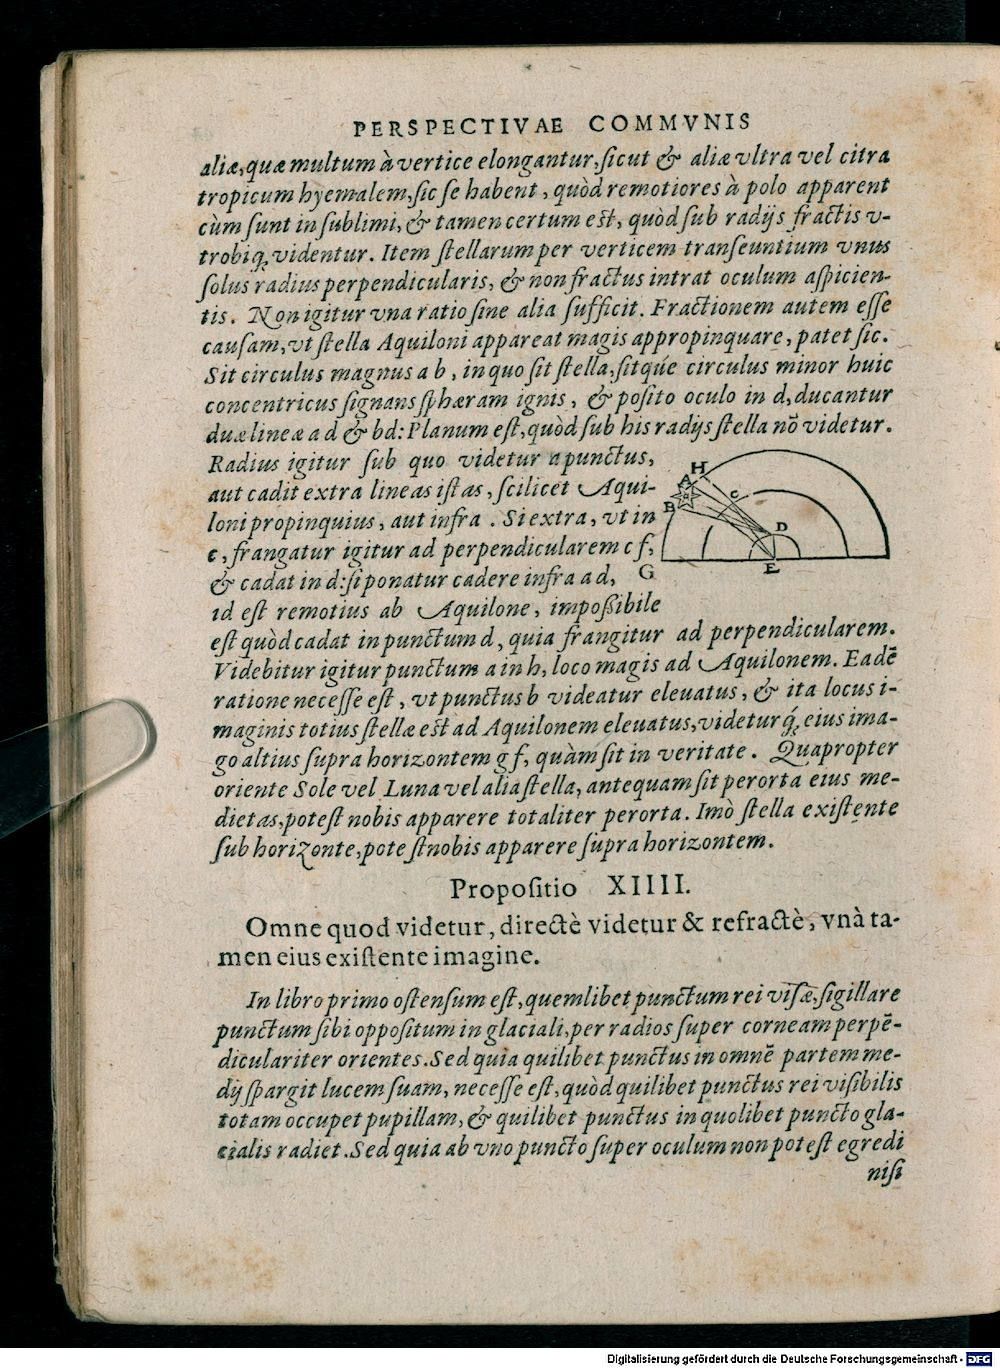 PERSPECTIVAE COMMVNIS
aliæ, quæ multum à vertice elongantur, sicut & aliæ vltra vel citra
tropicum hyemalem, sic se habent, quòd remotiores à polo apparent
cùm sunt in sublimi, & tamen certum est, quòd sub radijs fractis v-
trobiq; videntur. Item stellarum per verticem transeuntium vnus
solus radius perpendicularis, & non fractus intrat oculum aspicien-
tis. Non igitur vna ratio sine alia sufficit. Fractionem autem esse
causam, vt stella Aquiloni appareat magis appropinquare, patet sic.
Sit circulus magnus a b, in quo sit stella, sitqúe circulus minor huic
concentricus signans sphæram ignis, & posito oculo in d, ducantur
duæ lineæ a d & bd: Planum est, quòd sub his radijs stella nō videtur.
Radius igitur sub quo videtur a punctus,
aut cadit extra lineas istas, scilicet Aqui-
loni propinquius, aut infra. Si extra, vt in
c, frangatur igitur ad perpendicularem c f,
& cadat in d: si ponatur cadere infra a d,
id est remotius ab Aquilone, impoßibile
H
A
B
C
D
G
E
est quòd cadat in punctum d, quia frangitur ad perpendicularem.
Videbitur igitur punctum a in h, loco magis ad Aquilonem. Eadē
ratione necesse est, vt punctus b videatur eleuatus, & ita locus i-
maginis totius stellæ est ad Aquilonem eleuatus, videtur q́; eius ima-
go altius supra horizontem g f, quàm sit in veritate. Quapropter
oriente Sole vel Luna vel alia stella, antequam sit perorta eius me-
dietas, potest nobis apparere totaliter perorta. Imò stella existente
sub horizonte, potest nobis apparere supra horizontem.
Propositio XIIII.
Omne quod videtur, directè videtur & refractè, vnà ta-
men eius existente imagine.
In libro primo ostensum est, quemlibet punctum rei visæ, sigillare
punctum sibi oppositum in glaciali, per radios super corneam perpē-
diculariter orientes. Sed quia quilibet punctus in omnē partem me-
dij spargit lucem suam, necesse est, quòd quilibet punctus rei visibilis
totam occupet pupillam, & quilibet punctus in quolibet puncto gla-
cialis radiet. Sed quia ab vno puncto super oculum non potest egredi
nisi
Digitalisierung gefördert durch die Deutsche Forschungsgemeinschaft - DFG